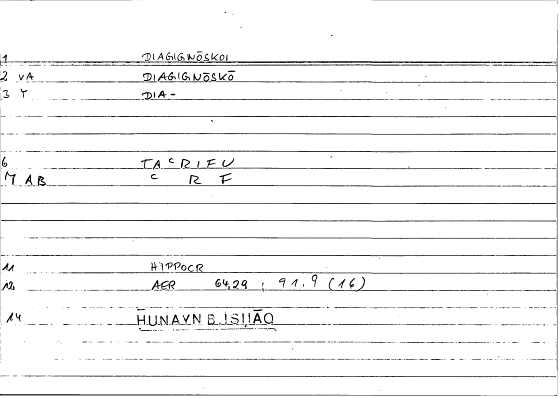 1 DIAGIGNŌSKOI
2 VA DIAGIGNŌSKŌ
3 Y DIA-
6 TACRIFU
M AB C R F
11 HIPPOCR
12 AER 64,29 ; 91.9 (16)
14 ḤUNAYN B.ISḤĀQ